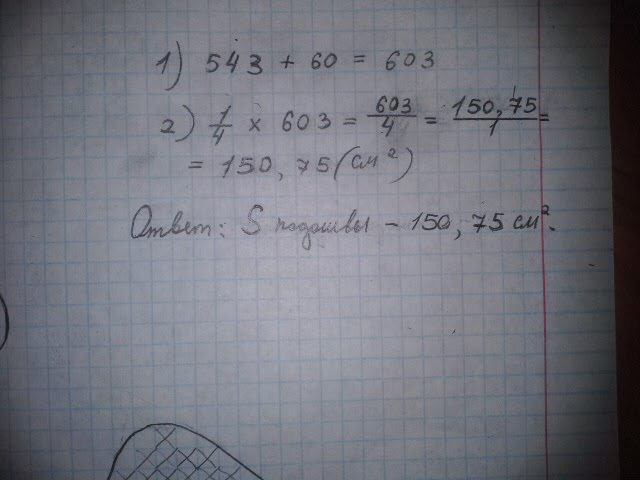 1) 543 + 60 = 603
2) 1/4 x 603 = 603/4 = 150,75/1 =
= 150,75 (см²)
Ответ: S подошвы - 150,75 см².